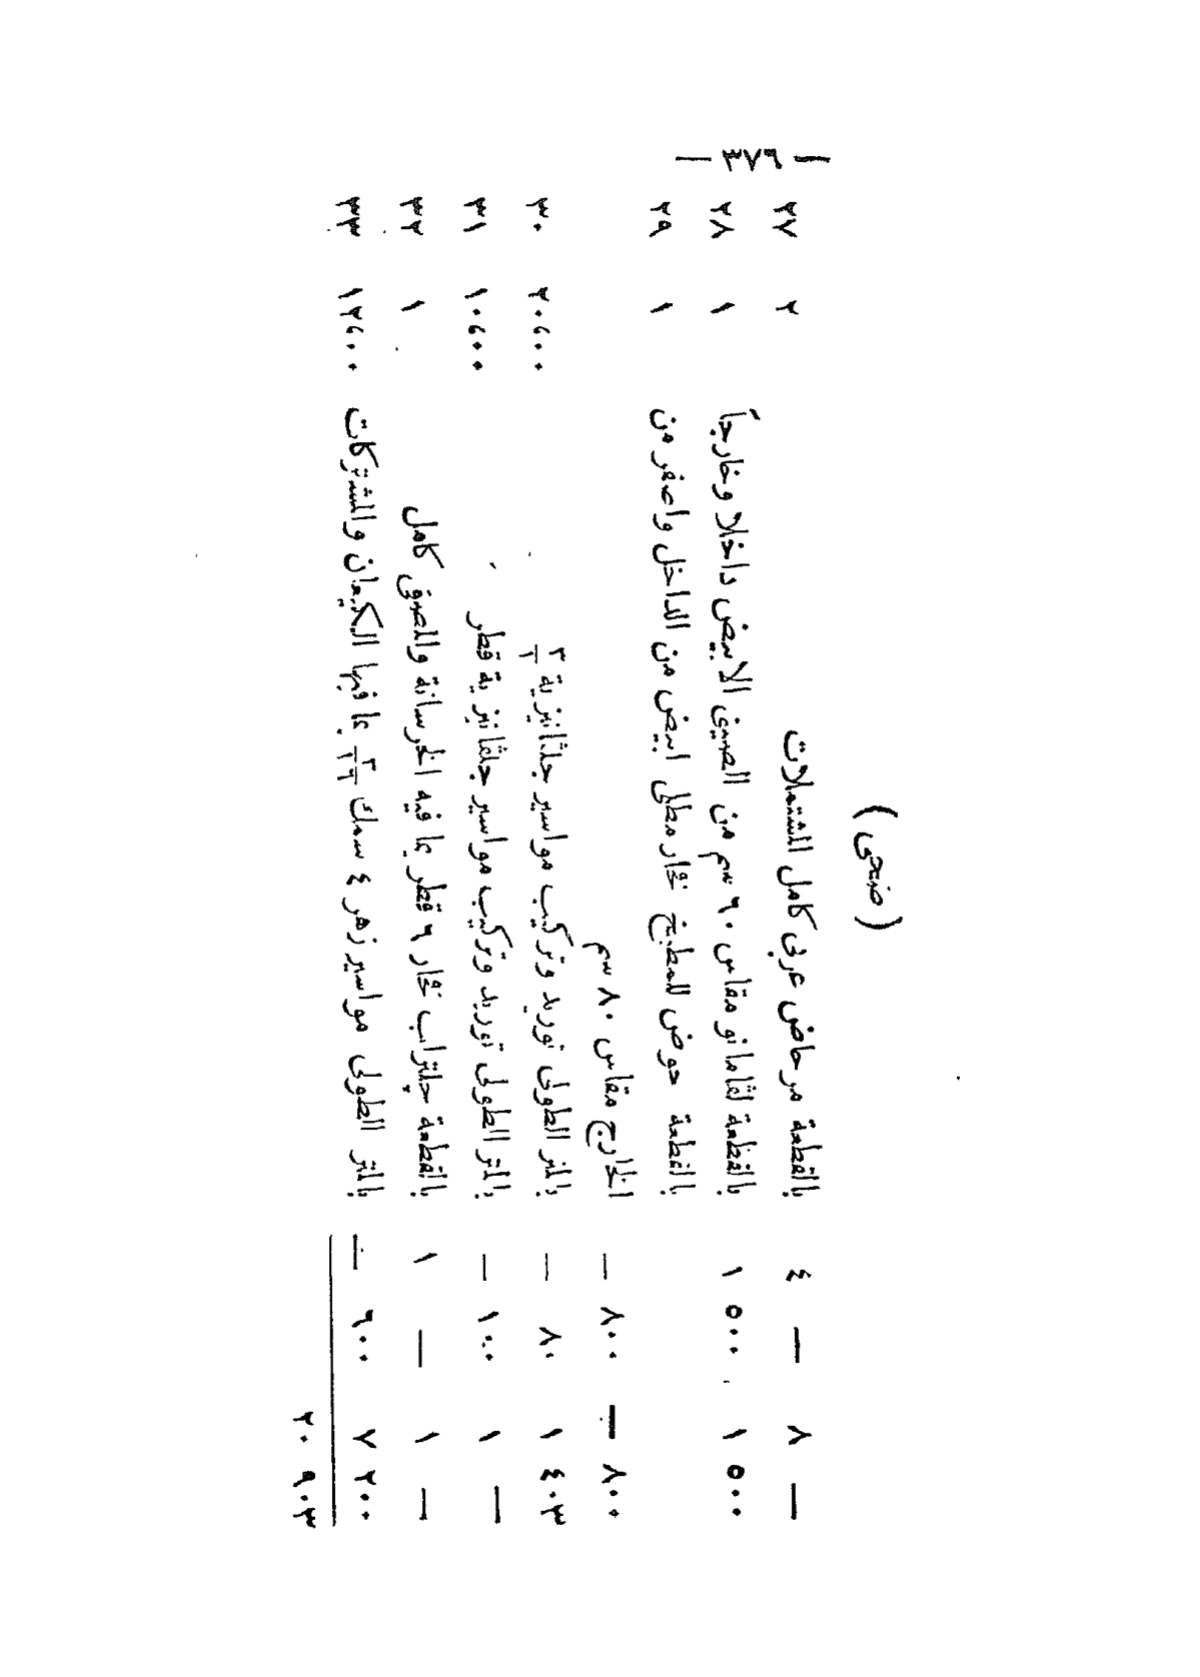 — ٣٧٦ —
(صحى)
٨ — ٤ — بالقطعة مرحاض عربى كامل المشتملات ٢ ٢٧
١ ٥٠٠ ١ ٥٠٠ بالقطعة لغامانو مقاس ٦٠ سم من الصينى الابيض داخلا وخارجاً ١ ٢٨
بالقطعة حوض للمطبخ فخار مطلى ابيض من الداخل واصفر من ١ ٢٩
— ٨٠٠ — ٨٠٠ الخارج مقاس ٨٠ سم
١ ٤٠٣ — ٨٠ بالمتر الطولى توريد وتركيب مواسير جلثانيزية ٢٠،٠٠ ٣٠
١ — — ١٠٠ بالمتر الطولى توريد وتركيب مواسير جلثانيزية قطر ١٠،٠٠ ٣١
١ — ١ — بالقطعة جليتراب فخار ٦ قطر بما فيه الخرسانة والمصفى كامل ١ ٣٢
٧ ٢٠٠ — ٦٠٠ بالمتر الطولى مواسير زهر ٤ سمك بما فيها الكيعان والمشتركات ١٢،٠٠ ٣٣
٢٠ ٩٠٣